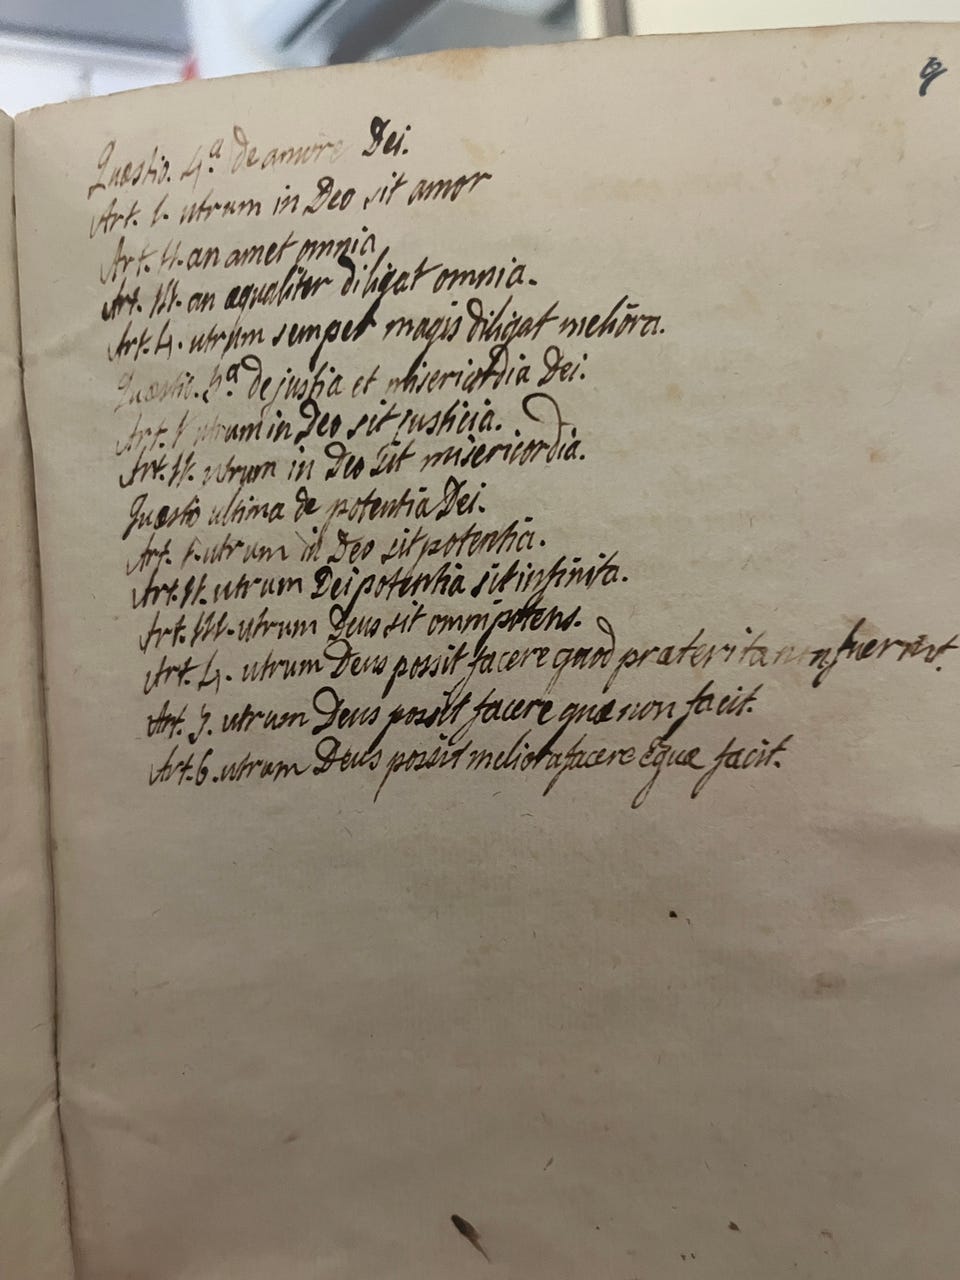 9
Quæstio. 4.ª de amore Dei.
Art. I. utrum in Deo sit amor
Art. II. an amet omnia
Art. III. an æqualiter diligat omnia.
Art. 4. utrum semper magis diligat meliōra.
Quæstio. 5ª de justia et misericordia Dei.
Art. I utrum in Deo sit justicia.
Art. II. utrum in Deo sit misericordia.
Quæstio ultima de potentia Dei.
Art. I. utrum in Deo sit potentia.
Art. II. utrum Dei potentia sit infinita.
Art. III. utrum Deus sit omnipotens.
Art. 4. utrum Deus possit facere quod præterita non fuerint.
Art. 5. utrum Deus possit facere quæ non facit.
Art. 6. utrum Deus possit meliora facere quæ facit.